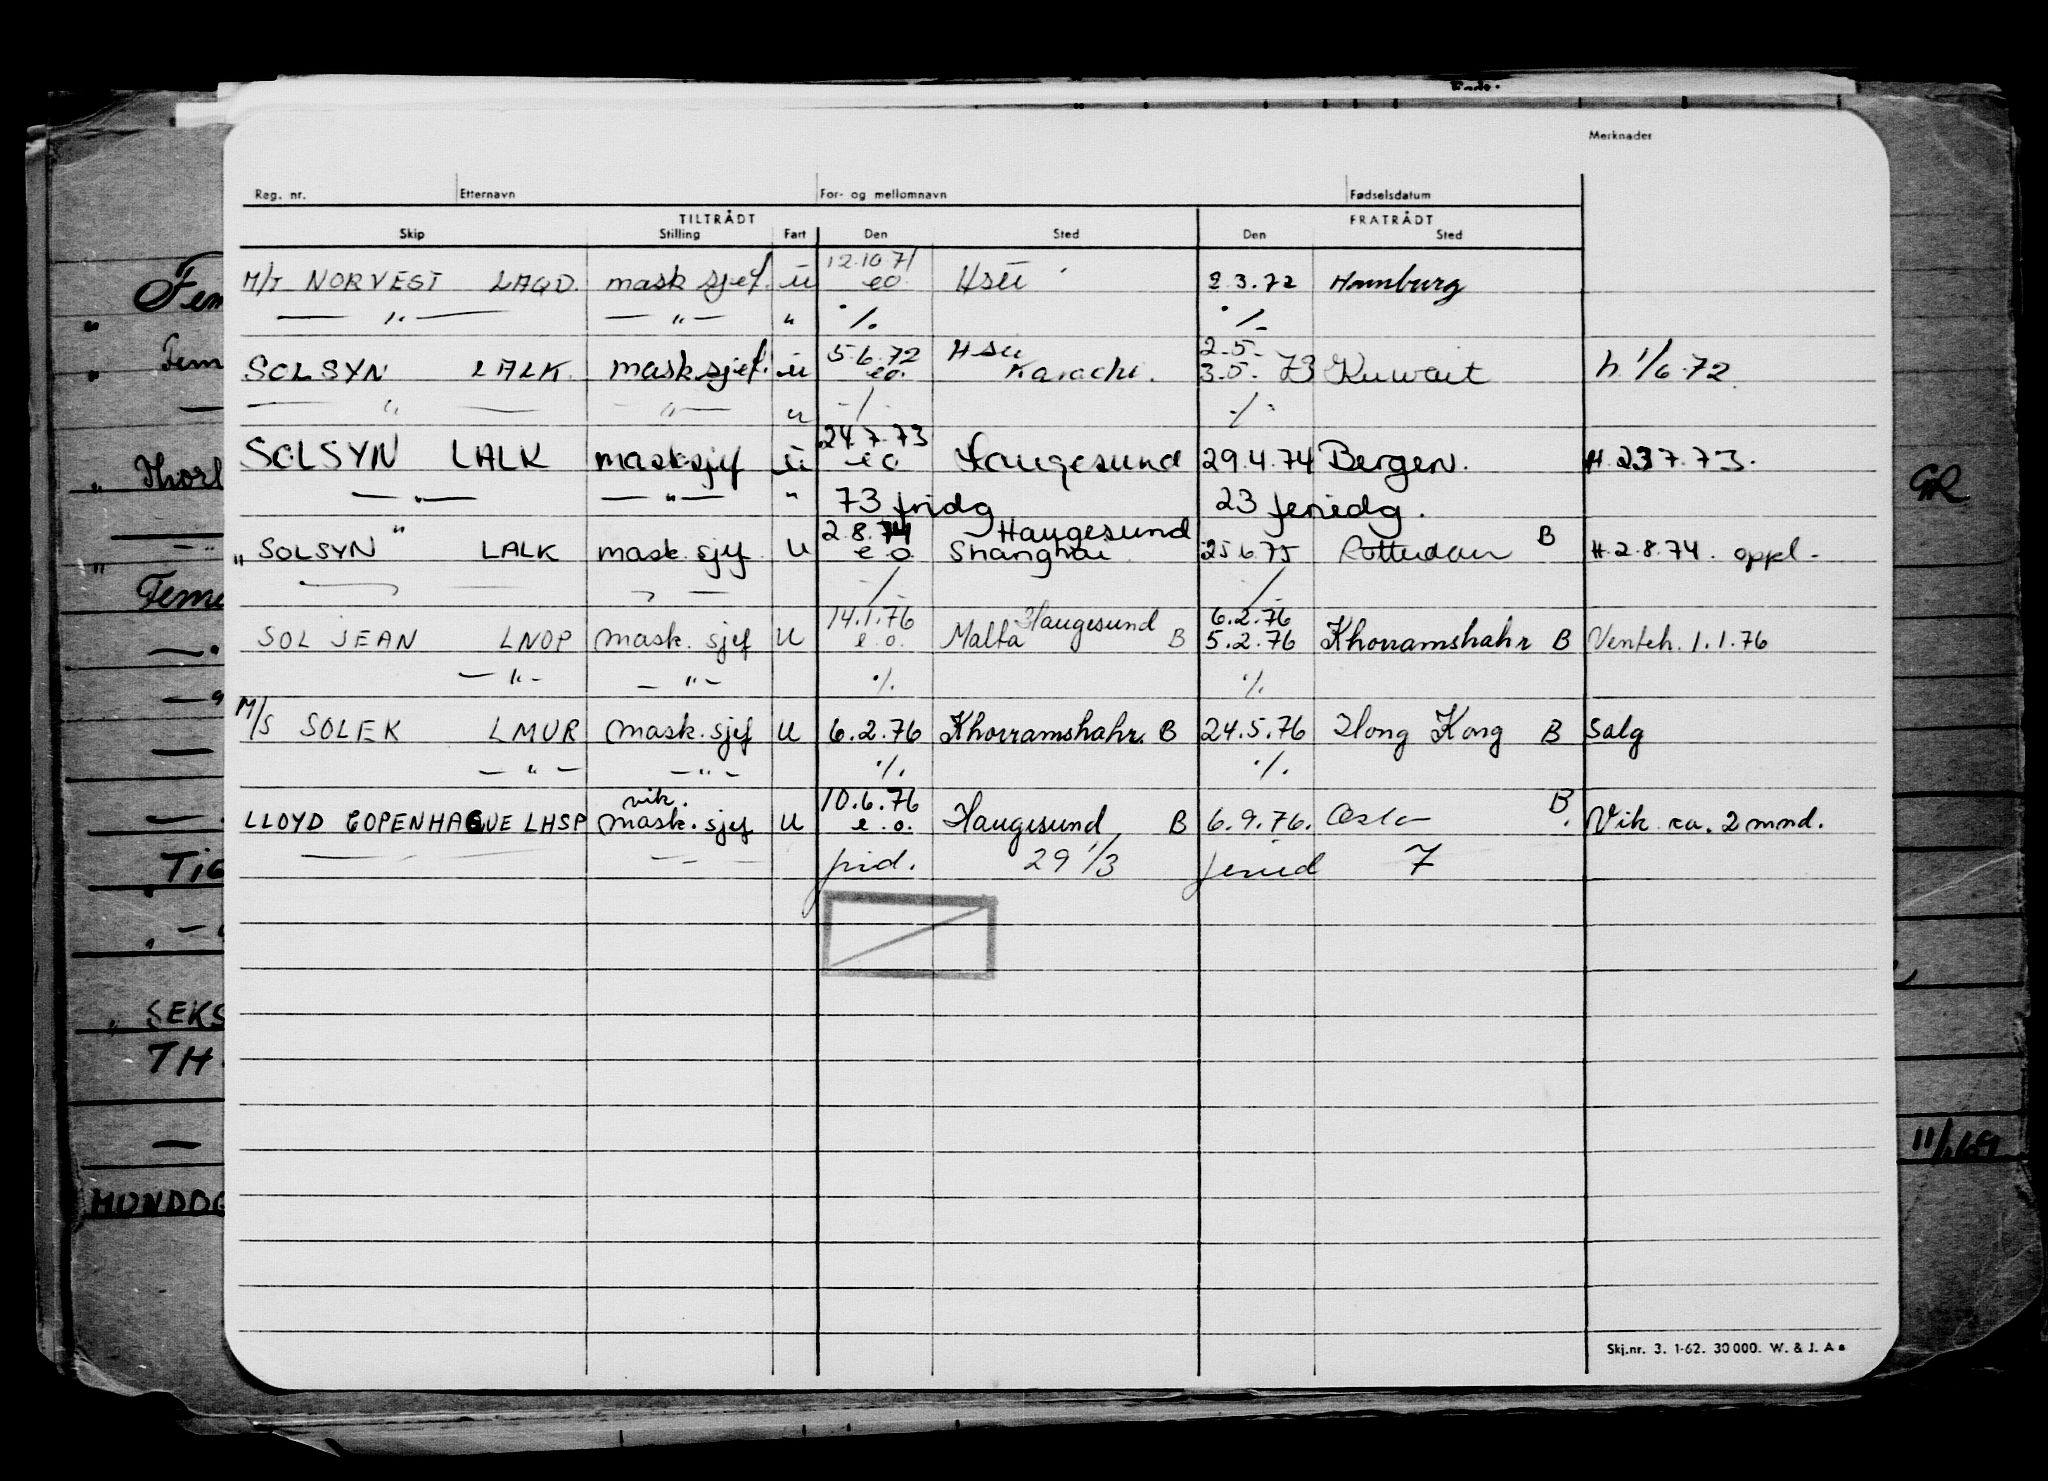 Merknader
Reg. nr. Etternavn For- og mellomnavn Fødselsdatum
TILTRÅDT FRATRÅDT
Skip Stilling Fart Den Sted Den Sted
12.10.71
M/T NORVEST LAQD. mask sjef. u eo Hsu 2.3.72 Hamburg
— " — — " — " %. %
5.6.72 Hsu 2.5.
SOLSYN LALK. mask sjef. u eo. Karachi. 3.5. 73 Kuwait h 1/6.72
— " — — " — u -/- -/-
24.7.73
SOLSYN LALK mask sjef u eo Haugesund 29.4.74 Bergen. H.237.73.
— " — — " — " 73 fridg 23 feriedg.
2.8.74 Haugesund
"SOLSYN" LALK mask. sjef u e o. Shanghai 25.6.75 Rotterdam B H.2.8.74. oppl-
14.1.76 Haugesund 6.2.76
SOL JEAN LNOP mask. sjef U e.o. Malta B 5.2.76 Khorramshahr B Venteh. 1.1.76
— " — — " — %. %
M/S SOLEK LMUR mask. sjef U 6.2.76 Khorramshahr. B 24.5.76 Hong Kong B Salg
— " — — " — %. %.
vik. 10.6.76 B
LLOYD COPENHAGUE LHSP mask. sjef U e.o. Haugesund B 6.9.76. Oslo Vik ca. 2 mnd.
frid. 29 1/3 feried 7
Fem
Fem
Thorl
GR
Feme
TIG
SEKS
TH
11/169
MUNDOG
Skj.nr. 3. 1-62. 30 000. W. & J. A s